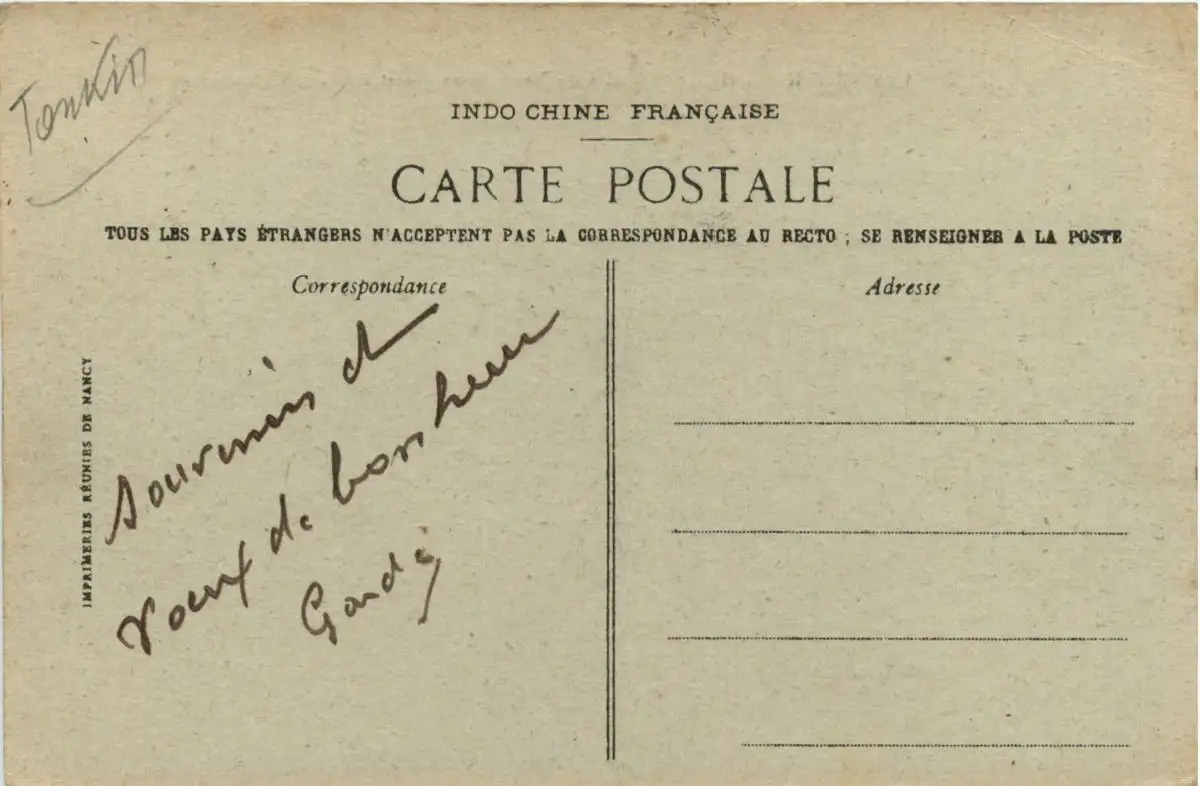 Tonkin
INDO CHINE FRANÇAISE
CARTE POSTALE
TOUS LES PAYS ÉTRANGERS N'ACCEPTENT PAS LA CORRESPONDANCE AU RECTO ; SE RENSEIGNER A LA POSTE
Correspondance
Adresse
souvenirs et
voeux de bonheur
IMPRIMERIES RÉUNIES DE NANCY